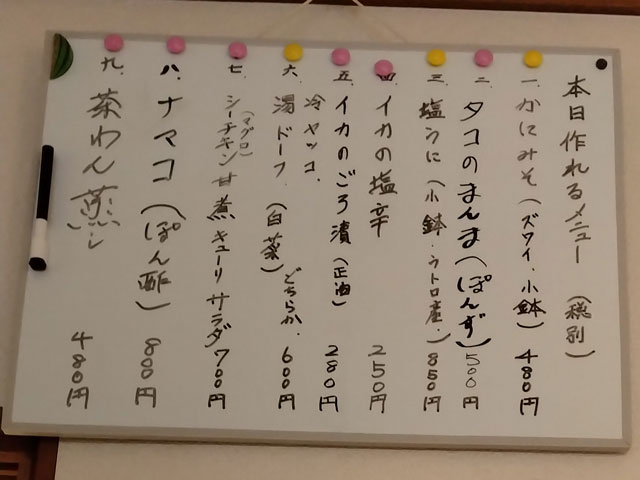 本日作れるメニュー (税別)
一、かにみそ(ズワイ、小鉢) 480円
二、タコのまんま(ぽんず) 500円
三、塩うに(小鉢、ウトロ産、) 850円
四、イカの塩辛 250円
五、イカのごろ漬(正油) 280円
六、冷ヤッコ、
湯ドーフ、(白菜) どちらか、 600円
七、シーチキン(マグロ)甘煮キューリサラダ 700円
八、ナマコ(ぽん酢) 800円
九、茶わん蒸し 480円